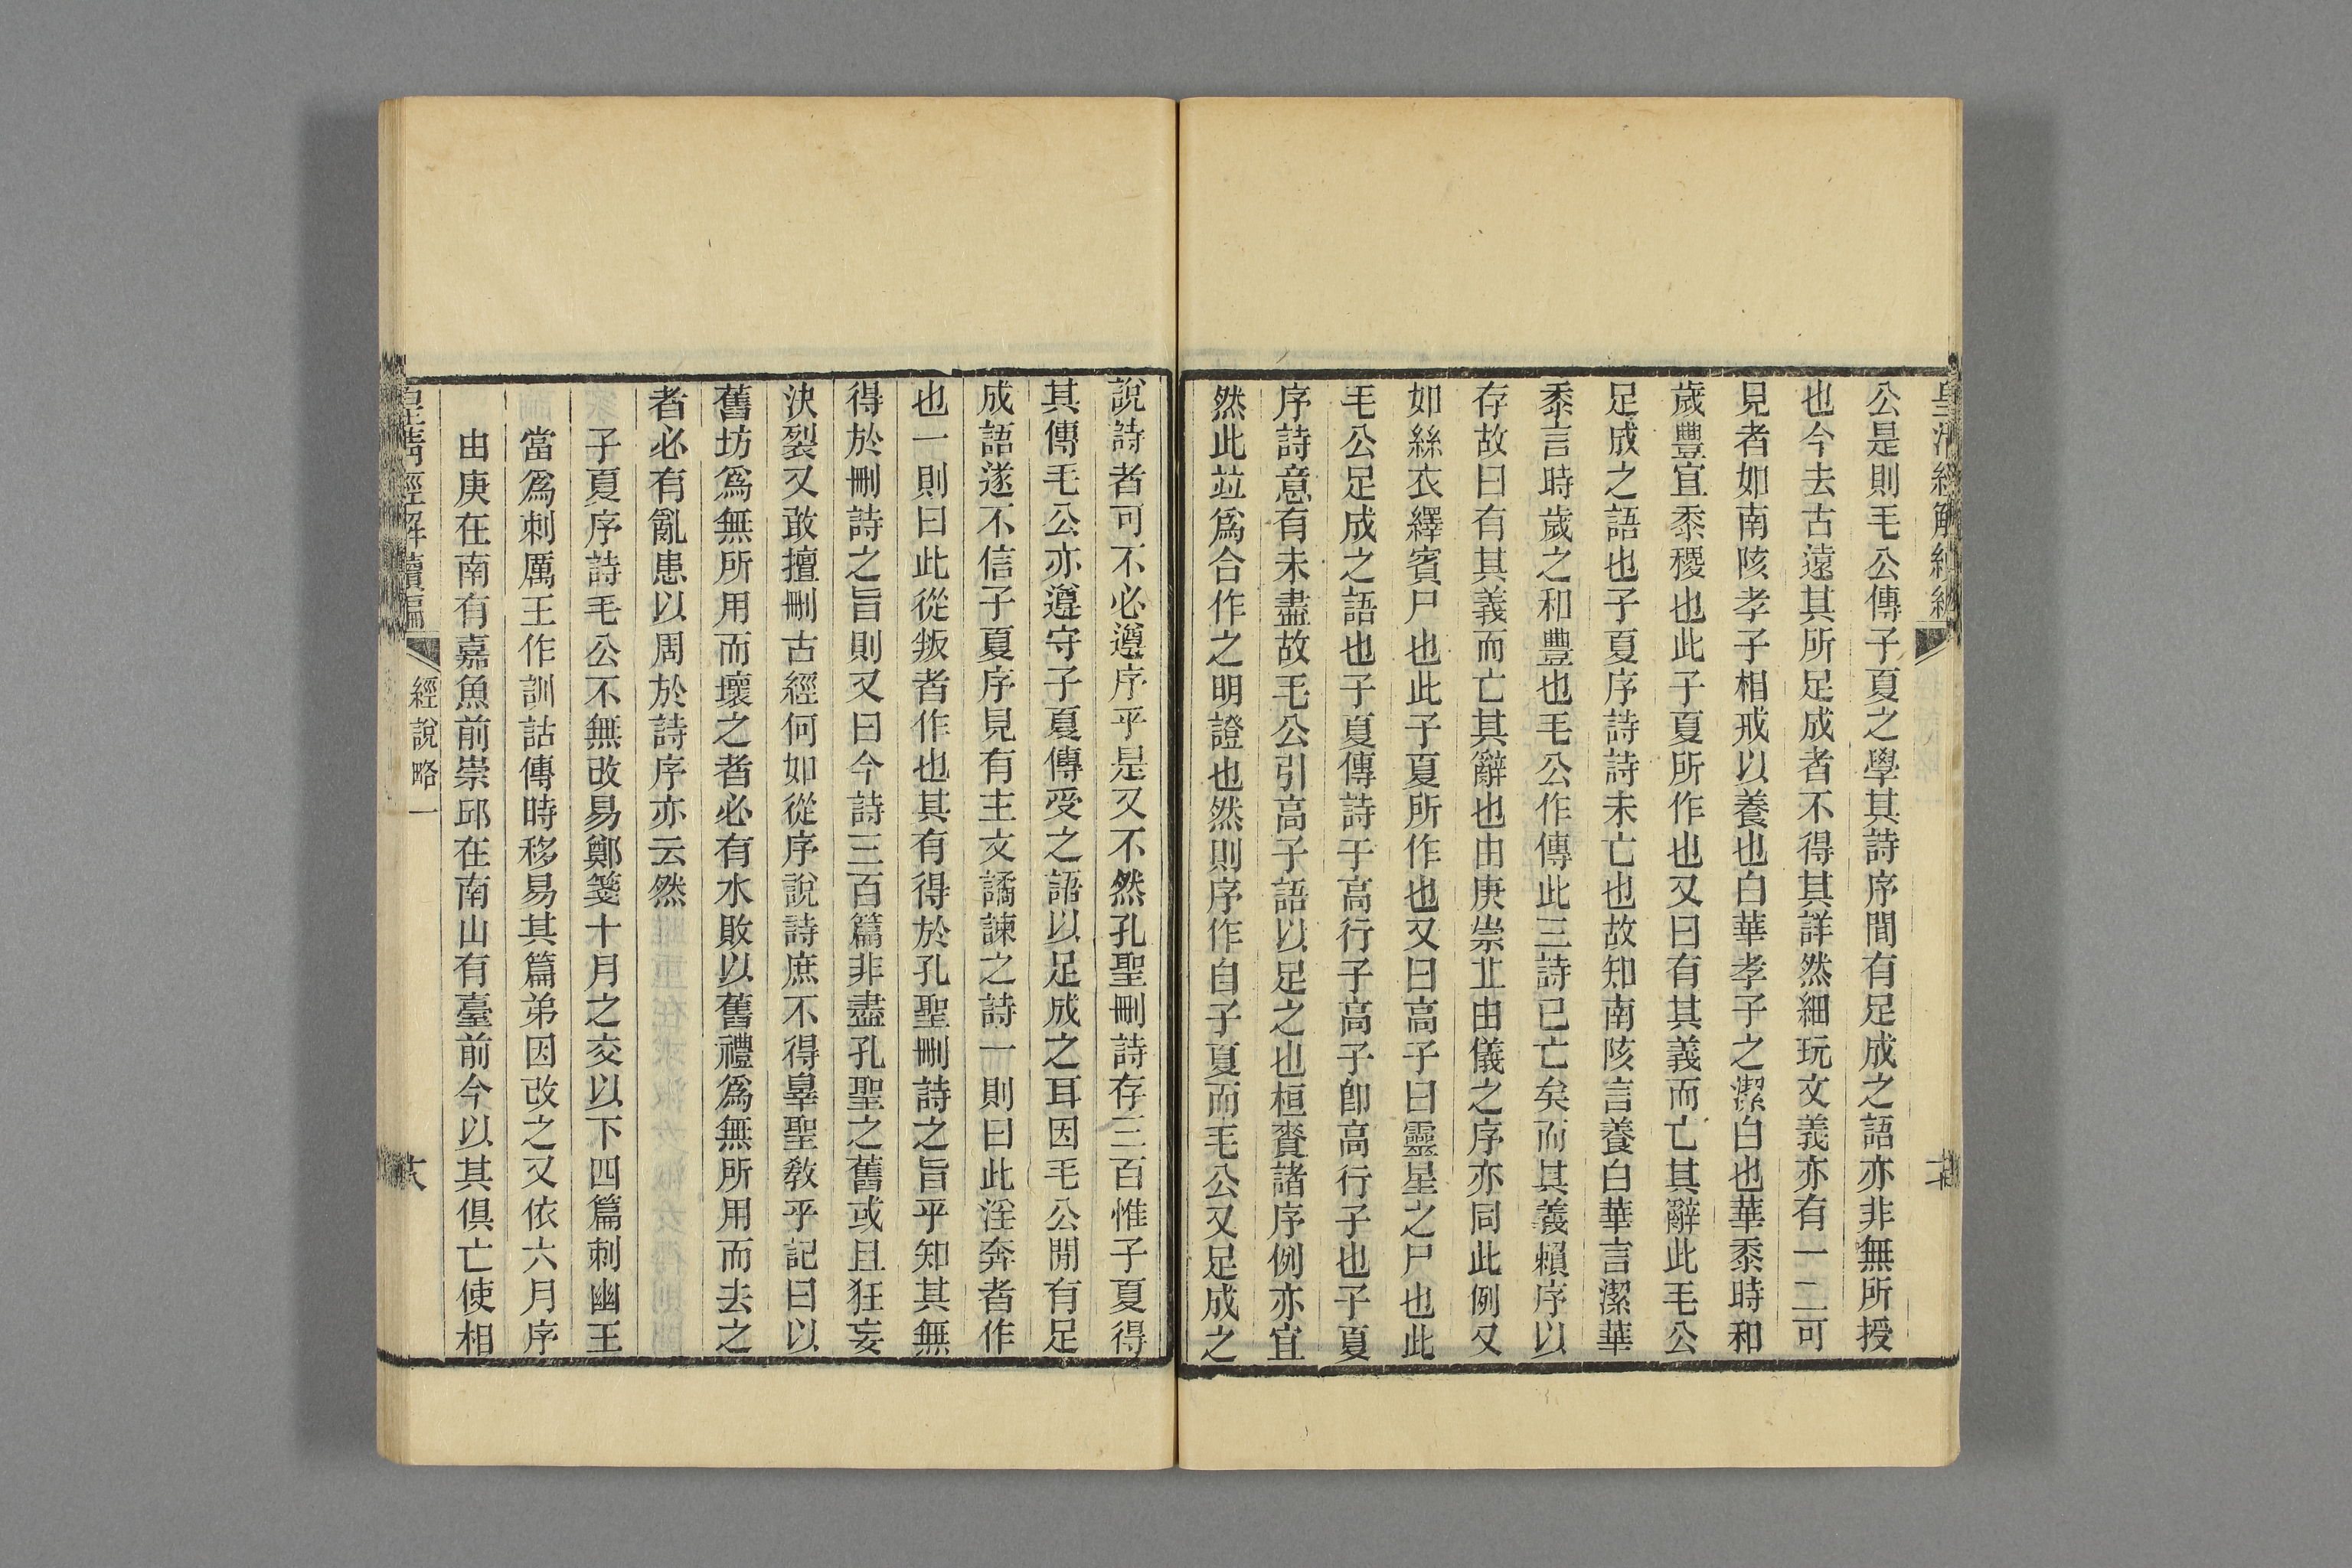 公是則毛公傳子夏之學其詩序間有足成之語亦非無所授
也今去古遠其所足成者不得其詳然細玩文義亦有一二可
見者如南陔孝子相戒以養也白華孝子之潔白也華黍時和
歲豐宜黍稷也此子夏所作也又曰有其義而亡其辭此毛公
足成之語也子夏序詩詩未亡也故知南陔言養白華言潔華
黍言時歲之和豐也毛公作傳此三詩已亡矣而其義賴序以
存故曰有其義而亡其辭也由庚崇丘由儀之序亦同此例又
如絲衣繹賓尸也此子夏所作也又曰高子曰靈星之尸也此
毛公足成之語也子夏傳詩于高行子高子卽高行子也子夏
序詩意有未盡故毛公引高子語以足之也桓賚諸序例亦宜
然此竝爲合作之明證也然則序作自子夏而毛公又足成之
說詩者可不必遵序乎是又不然孔聖刪詩存三百惟子夏得
其傳毛公亦遵守子夏傳受之語以足成之耳因毛公閒有足
成語遂不信子夏序見有主文譎諫之詩一則曰此淫奔者作
也一則曰此從叛者作也其有得於孔聖刪詩之旨乎知其無
得於刪詩之旨則又曰今詩三百篇非盡孔聖之舊或且狂妄
決裂又敢擅刪古經何如從序說詩庶不得辠聖敎乎記曰以
舊坊爲無所用而壞之者必有水敗以舊禮爲無所用而去之
者必有亂患以周於詩序亦云然
子夏序詩毛公不無改易鄭箋十月之交以下四篇刺幽王
當爲刺厲王作訓詁傳時移易其篇弟因改之又依六月序
由庚在南有嘉魚前崇邱在南山有臺前今以其俱亡使相
皇清經解續編
經說略一
十八